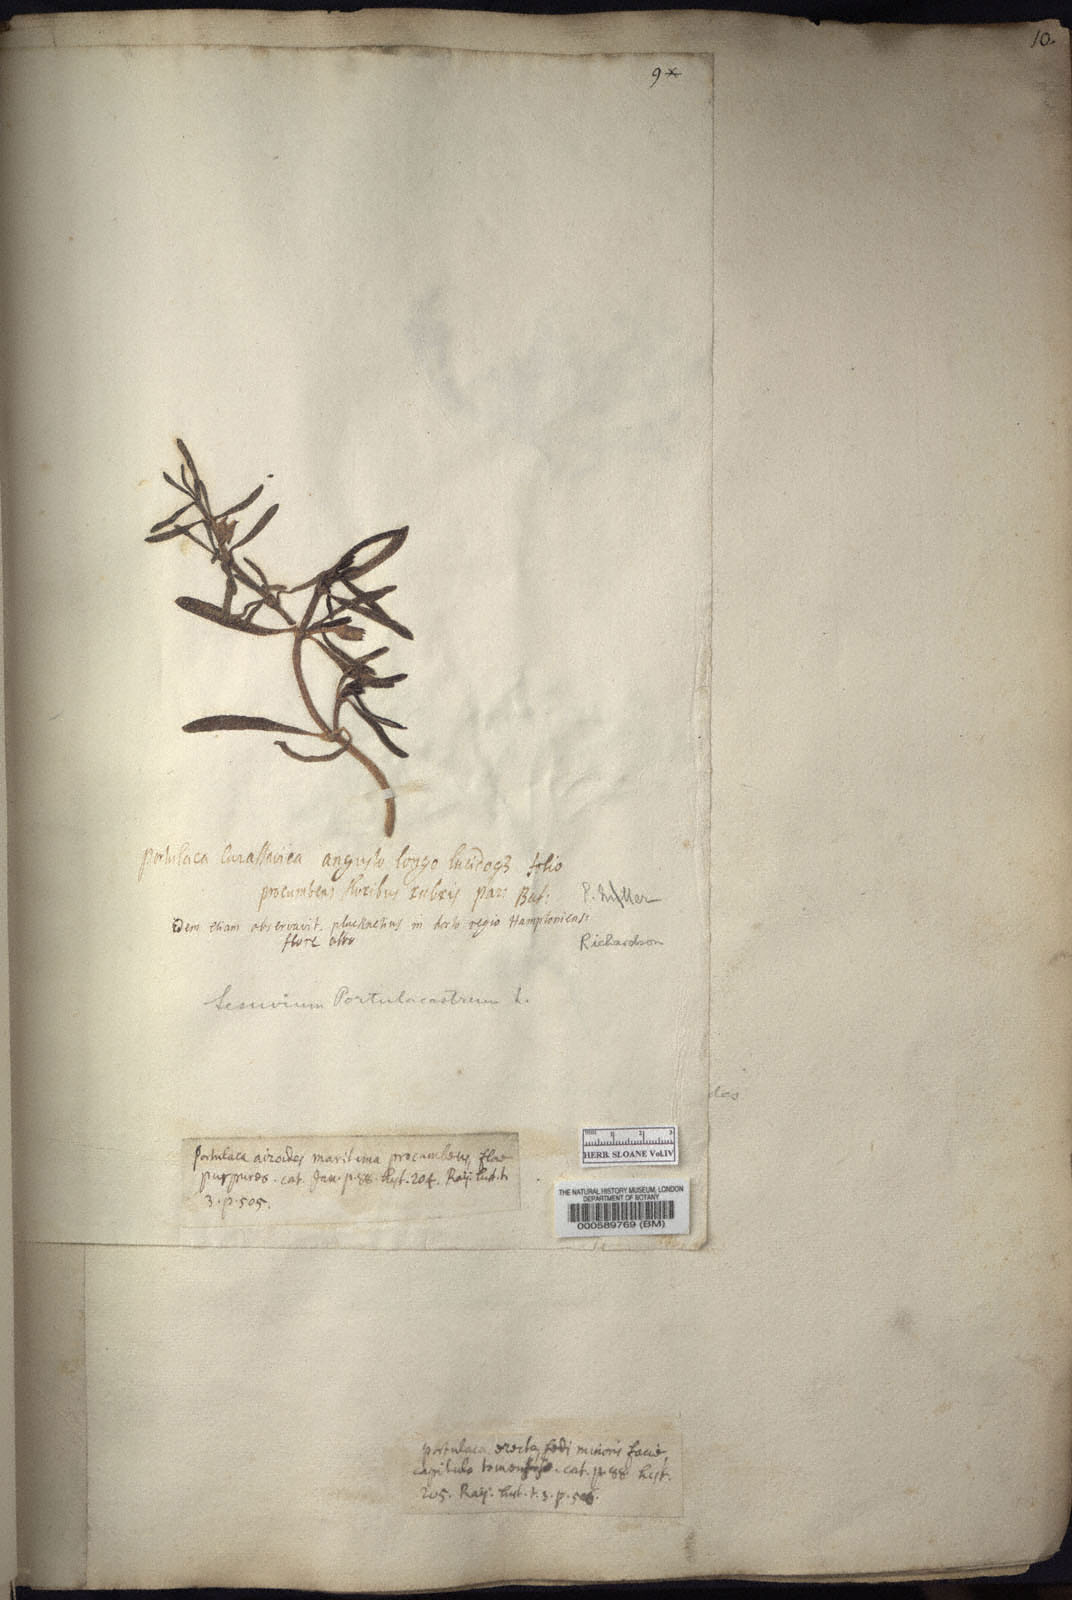 10.
9*
portulaca Curassavica angusto longo lucidoq3 folio
procumbens floribus rubris par: Bat:
P. Miller
Idem etiam observavit. plucknetius in horto regio Hamptonicasi
flore albo
Richardson
Sesuvium Portulacastrum L.
des
Portulaca aizoides maritima procumbens flore
purpureo. cat. Jam. p. 88. Hist. 204. Raij. hist. t.
3. p. 505.
HERB. SLOANE Vol.IV
THE NATURAL HISTORY MUSEUM, LONDON
DEPARTMENT OF BOTANY
000589769 (BM)
portulaca erecta, sedi minoris facie,
capitulo tomentoso. cat. p. 88 hist.
205. Raij. hist. t. 3. p. 506.